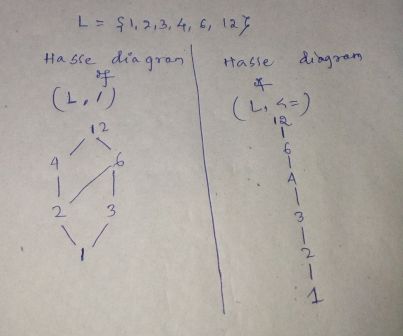 L = {1,2,3,4, 6, 12}
Hasse diagram
of
(L, /)
12
4 6
2 3
1
Hasse diagram
of
(L, <=)
12
6
4
3
2
1